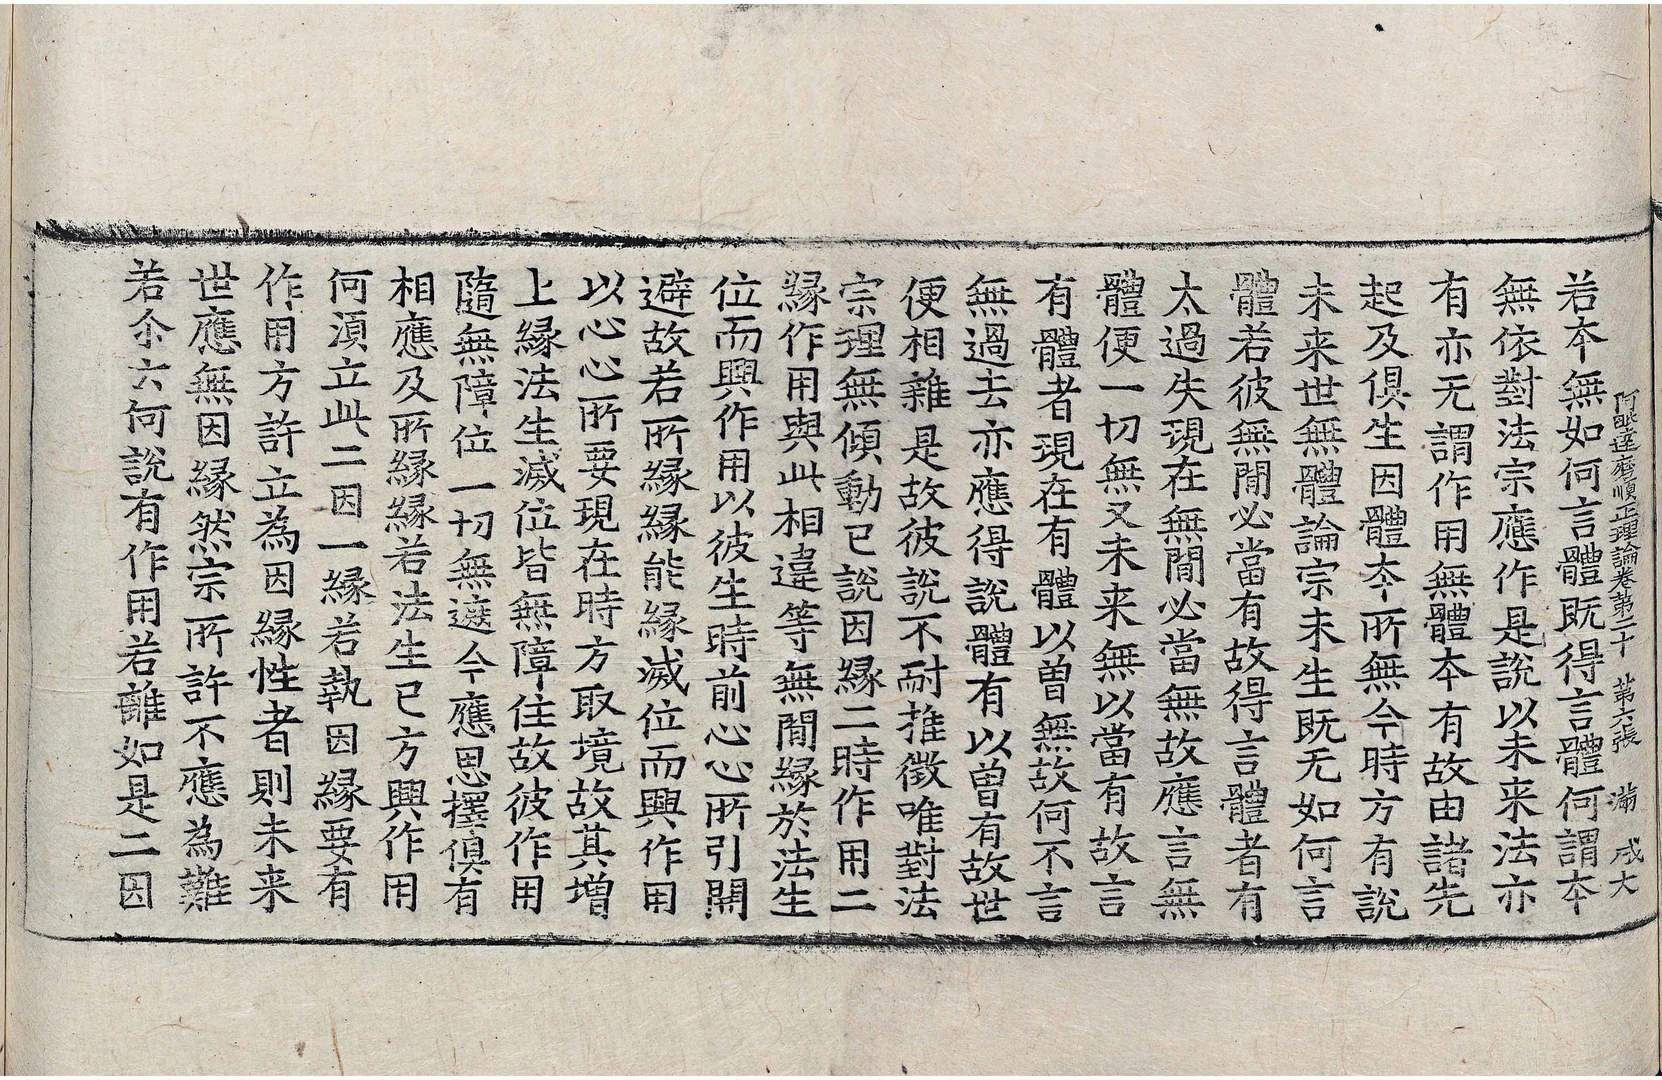 阿毗達磨順正理論卷第二十　第六張　滿　戌大
若本無如何言體既得言體何謂本
無依對法宗應作是說以未来法亦
有亦无謂作用無體本有故由諸先
起及俱生因體本所無今時方有說
未来世無體論宗未生既无如何言
體若彼無閒必當有故得言體者有
太過失現在無閒必當無故應言無
體便一切無又未来無以當有故言
有體者現在有體以曽無故何不言
無過去亦應得說體有以曽有故世
便相雜是故彼說不耐推徵唯對法
宗理無傾動已說因緣二時作用二
緣作用與此相違等無閒緣於法生
位而興作用以彼生時前心心所引開
避故若所緣緣能緣滅位而興作用
以心心所要現在時方取境故其增
上緣法生滅位皆無障住故彼作用
隨無障位一切無遮今應思擇俱有
相應及所緣緣若法生已方興作用
何湏立此二因一緣若執因緣要有
作用方許立為因緣性者則未来
世應無因緣然宗所許不應為難
若尒六何說有作用若離如是二因